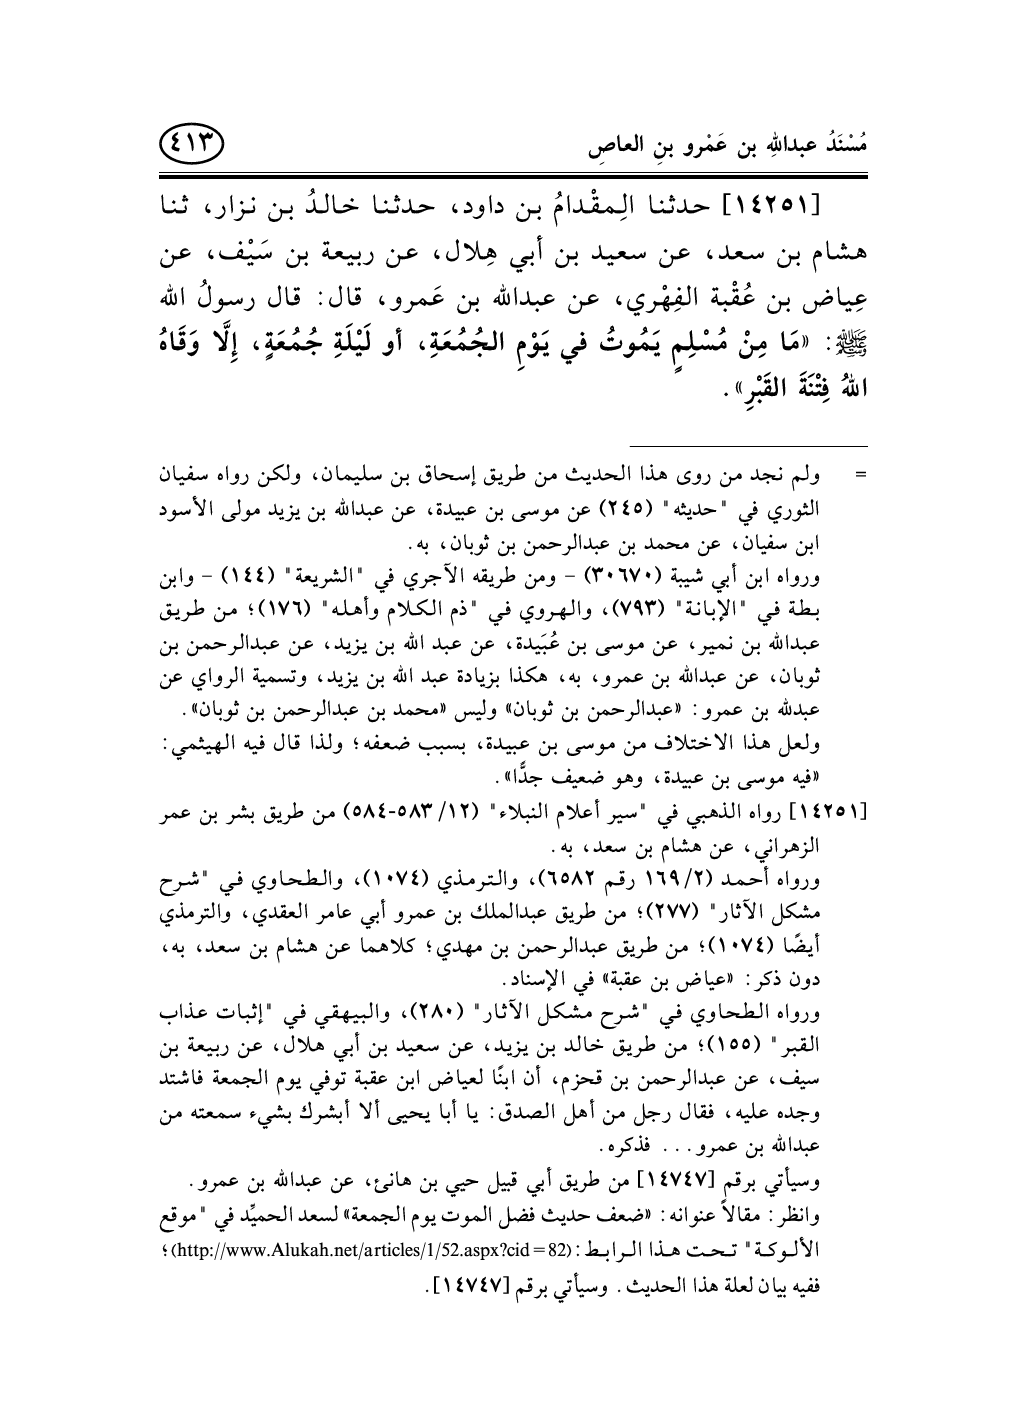 مُسْنَدُ عبداللهِ بن عَمْرو بنِ العاصِ
٤١٣
[١٤٢٥١] حدثنا المِقْدامُ بن داود، حدثنا خالدُ بن نزار، ثنا
هشام بن سعد، عن سعيد بن أبي هِلال، عن ربيعة بن سَيْف، عن
عِياض بن عُقْبة الفِهْري، عن عبدالله بن عَمرو، قال: قال رسولُ الله
ﷺ: «مَا مِنْ مُسْلِمٍ يَمُوتُ في يَوْمِ الجُمُعَةِ، أو لَيْلَةِ جُمُعَةٍ، إِلَّا وَقَاهُ
اللهُ فِتْنَةَ القَبْرِ».
= ولم نجد من روى هذا الحديث من طريق إسحاق بن سليمان، ولكن رواه سفيان
الثوري في "حديثه" (٢٤٥) عن موسى بن عبيدة، عن عبدالله بن يزيد مولى الأسود
ابن سفيان، عن محمد بن عبدالرحمن بن ثوبان، به.
ورواه ابن أبي شيبة (٣٠٦٧٠) - ومن طريقه الآجري في "الشريعة" (١٤٤) - وابن
بطة في "الإبانة" (٧٩٣)، والهروي في "ذم الكلام وأهله" (١٧٦)؛ من طريق
عبدالله بن نمير، عن موسى بن عُبَيدة، عن عبد الله بن يزيد، عن عبدالرحمن بن
ثوبان، عن عبدالله بن عمرو، به، هكذا بزيادة عبد الله بن يزيد، وتسمية الرواي عن
عبدلله بن عمرو: «عبدالرحمن بن ثوبان» وليس «محمد بن عبدالرحمن بن ثوبان».
ولعل هذا الاختلاف من موسى بن عبيدة، بسبب ضعفه؛ ولذا قال فيه الهيثمي:
«فيه موسى بن عبيدة، وهو ضعيف جدًّا».
[١٤٢٥١] رواه الذهبي في "سير أعلام النبلاء" (١٢/ ٥٨٣-٥٨٤) من طريق بشر بن عمر
الزهراني، عن هشام بن سعد، به.
ورواه أحمد (٢/ ١٦٩ رقم ٦٥٨٢)، والترمذي (١٠٧٤)، والطحاوي في "شرح
مشكل الآثار" (٢٧٧)؛ من طريق عبدالملك بن عمرو أبي عامر العقدي، والترمذي
أيضًا (١٠٧٤)؛ من طريق عبدالرحمن بن مهدي؛ كلاهما عن هشام بن سعد، به،
دون ذكر: «عياض بن عقبة» في الإسناد.
ورواه الطحاوي في "شرح مشكل الآثار" (٢٨٠)، والبيهقي في "إثبات عذاب
القبر" (١٥٥)؛ من طريق خالد بن يزيد، عن سعيد بن أبي هلال، عن ربيعة بن
سيف، عن عبدالرحمن بن قحزم، أن ابنًا لعياض ابن عقبة توفي يوم الجمعة فاشتد
وجده عليه، فقال رجل من أهل الصدق: يا أبا يحيى ألا أبشرك بشيء سمعته من
عبدالله بن عمرو... فذكره.
وسيأتي برقم [١٤٧٤٧] من طريق أبي قبيل حيي بن هانئ، عن عبدالله بن عمرو.
وانظر: مقالاً عنوانه: «ضعف حديث فضل الموت يوم الجمعة» لسعد الحميِّد في "موقع
الألوكة" تحت هذا الرابط: (http://www.Alukah.net/articles/1/52.aspx?cid=82)؛
ففيه بيان لعلة هذا الحديث. وسيأتي برقم [١٤٧٤٧].